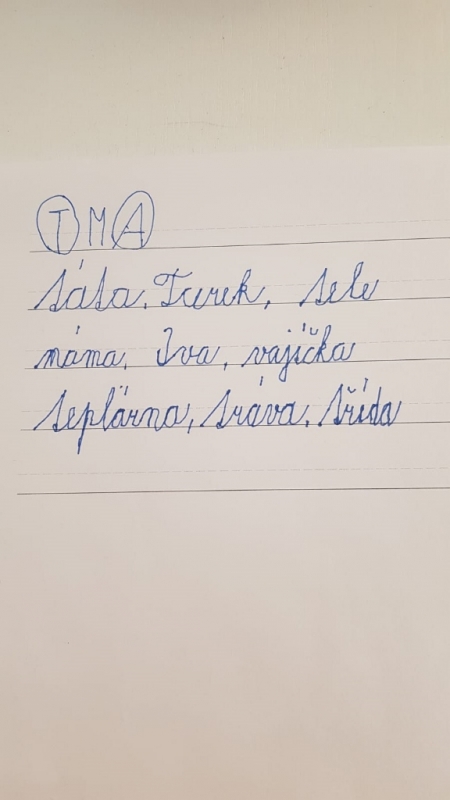 TMA
táta, Turek, tele
máma, Iva, vajíčka
teplárna, tráva, třída